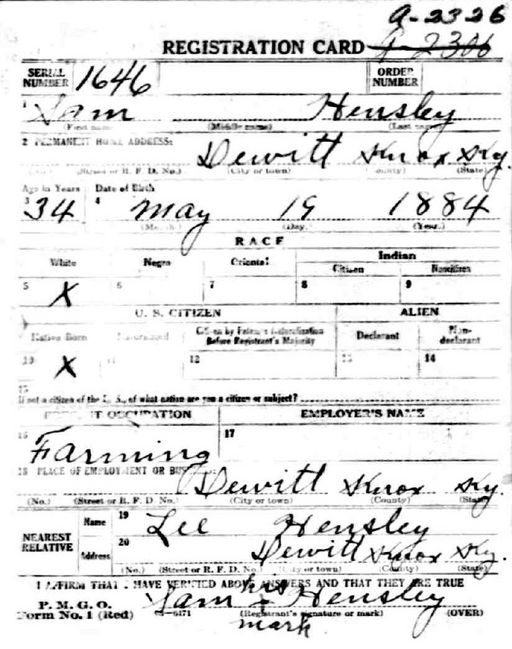 A-2326
REGISTRATION CARD A-2306
SERIAL NUMBER 1646 ORDER NUMBER
1 Sam Hensley
(First name) (Middle name) (Last name)
2 PERMANENT HOME ADDRESS:
Dewitt Knox Ky.
(Street or R. F. D. No.) (City or town) (County) (State)
Age in Years Date of Birth
3 34 4 May 19 1884
(Month.) (Day.) (Year.)
RACE
White Negro Oriental Indian
Citizen Noncitizen
5 X 6 7 8 9
U. S. CITIZEN ALIEN
Native Born Naturalized Citizen by Father's Naturalization Before Registrant's Majority Declarant Non-declarant
10 X 11 12 13 14
15
If not a citizen of the U. S., of what nation are you a citizen or subject?
PRESENT OCCUPATION EMPLOYER'S NAME
16 Farming 17
18 PLACE OF EMPLOYMENT OR BUSINESS:
Dewitt Knox Ky.
(No.) (Street or R. F. D. No.) (City or town) (County) (State)
NEAREST RELATIVE Name 19 Lee Hensley
Address 20 Dewitt Knox Ky.
(No.) (Street or R. F. D. No.) (City or town) (County) (State)
I AFFIRM THAT I HAVE VERIFIED ABOVE ANSWERS AND THAT THEY ARE TRUE
P. M. G. O.
Form No. 1 (Red)
his
Sam + Hensley
(Registrant's signature or mark) (OVER)
mark